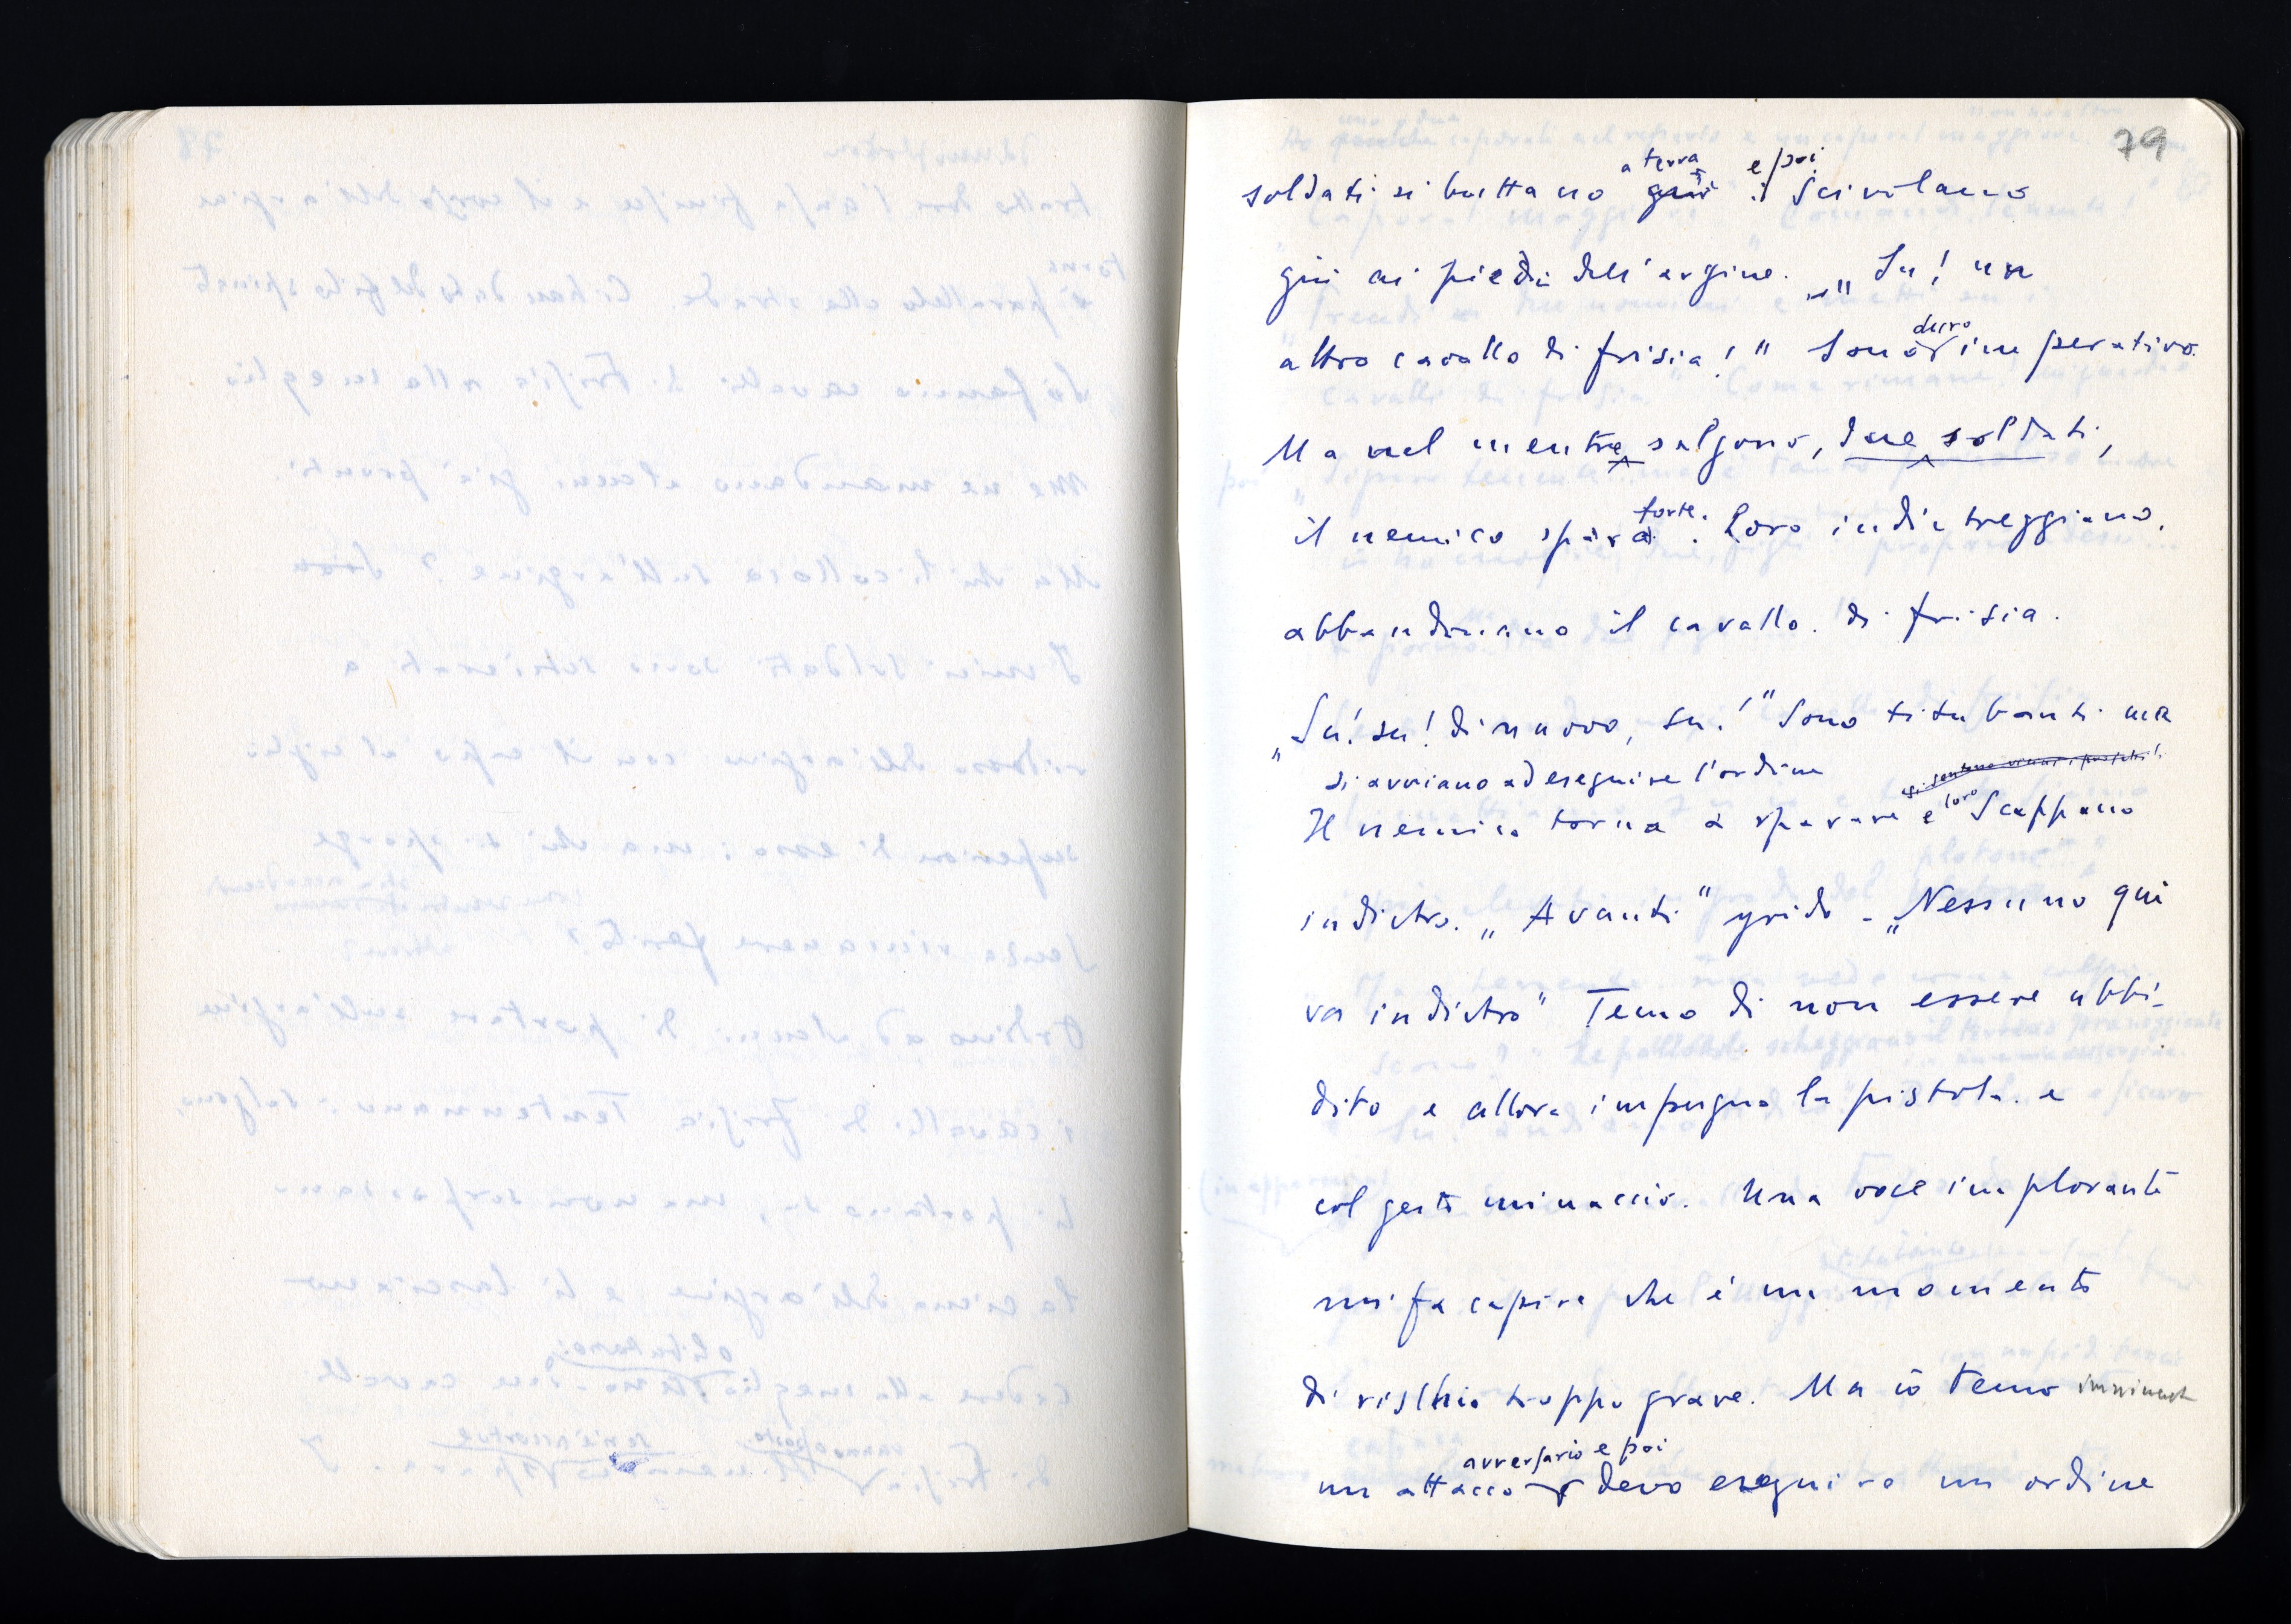 79
a terra e poi
soldati si buttano giù scivolano
giù ai piedi dell'argine. „Su! un
duro
altro cavallo di frisia!" Sono imperativo.
Ma nel mentre salgono, due soldati,
il nemico spara forte. Loro indietreggiano,
abbandonano il cavallo di frisia.
„Su! su! di nuovo, su!" Sono titubanti ma
si avviano ad eseguire l'ordine
Il nemico torna a sparare e loro scappano
indietro. „Avanti" grido - „Nessuno qui
va indietro" Temo di non essere ubbi-
dito e allora impugno la pistola e
col gesto minaccio. Una voce implorante
mi fa capire che è un momento
di rischio troppo grave. Ma io temo imminente
avversario e poi
un attacco devo eseguire un ordine